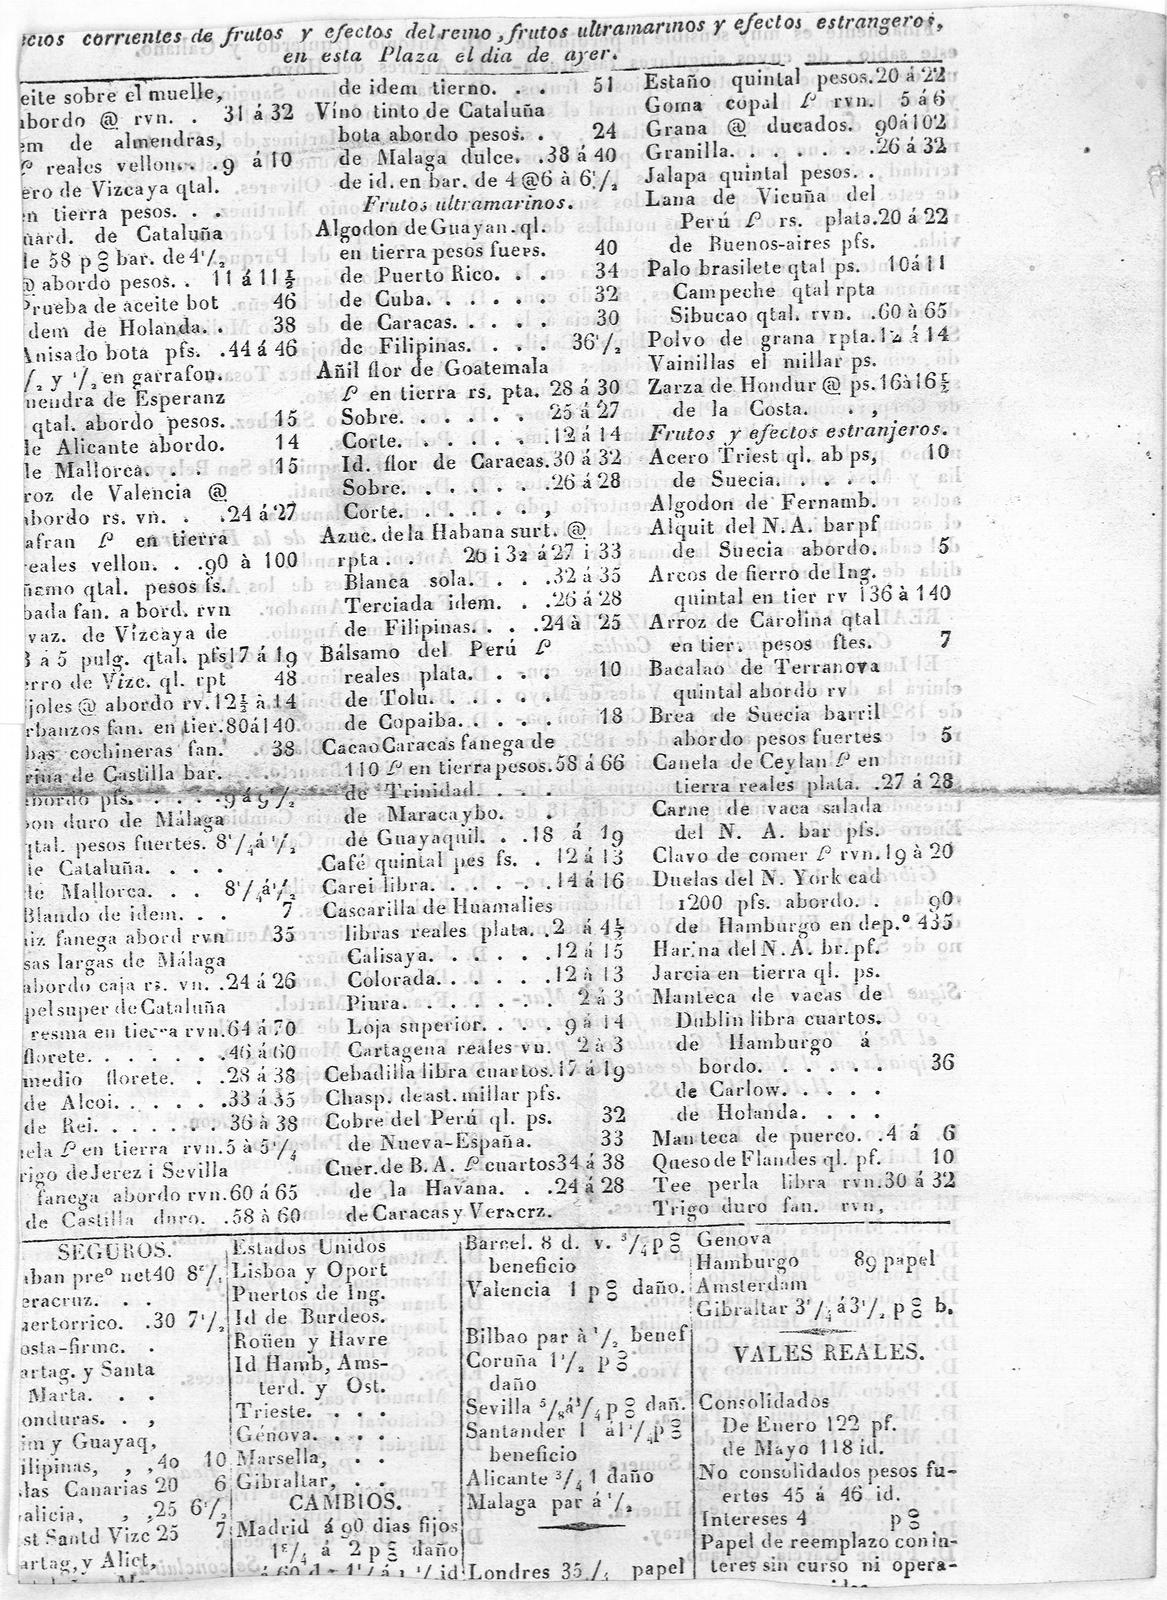 cios corrientes de frutos y efectos del reino, frutos ultramarinos y efectos estrangeros,
en esta Plaza el dia de ayer.
eite sobre el muelle,
abordo @ rvn. . 31 á 32
em de almendras,
℔ reales vellon. . 9 á 10
ero de Vizcaya qtal.
en tierra pesos. . .
uard. de Cataluña
de 58 p8 bar. de 4'/2
@ abordo pesos. . 11 á 11½
Prueba de aceite bot 46
dem de Holanda. . 38
Anisado bota pfs. .44 á 46
/2 y '/2 en garrafon.
mendra de Esperanz
qtal. abordo pesos. 15
de Alicante abordo. 14
de Mallorca. . 15
roz de Valencia @
abordo rs. vn. . .24 á 27
afran ℔ en tierra
reales vellon. . .90 à 100
ñamo qtal. pesos fs.
bada fan. a bord. rvn
vaz. de Vizcaya de
3 á 5 pulg. qtal. pfs 17 á 19
erro de Vizc. ql. rpt 48
joles @ abordo rv. 12½ à 14
rbanzos fan. en tier. 80 á 140
bas cochineras fan. 38
rina de Castilla bar.
abordo pfs. . . . . 9 á 9'/2
bon duro de Málaga
qtal. pesos fuertes. 8'/4 á '/2
de Cataluña. . . .
de Mallorca. . . 8'/4 á '/2
Blando de idem. . . 7
aiz fanega abord rvn 35
sas largas de Málaga
abordo caja rs. vn. .24 á 26
pel super de Cataluña
resma en tierra rvn. 64 á 70
florete. . . . . .46 á 60
medio florete. . .28 á 38
de Alcoi. . . . . .33 á 35
de Rei. . . . . . 36 à 38
ela ℔ en tierra rvn. 5 à 5'/4
rigo de Jerez i Sevilla
fanega abordo rvn. 60 á 65
de Castilla duro. .58 à 60
de idem tierno. . . 51
Vino tinto de Cataluña
bota abordo pesos. . 24
de Malaga dulce. .38 á 40
de id. en bar. de 4 @ 6 à 6'/2
Frutos ultramarinos.
Algodon de Guayan. ql.
en tierra pesos fuers. 40
de Puerto Rico. . . 34
de Cuba. . . . . . 32
de Caracas. . . . . 30
de Filipinas. . . 36'/2
Añil flor de Goatemala
℔ en tierra rs. pta. 28 á 30
Sobre. . . . . . 25 á 27
Corte. . . . . . 12 á 14
Id. flor de Caracas. 30 á 32
Sobre. . . . . .26 á 28
Corte. . . . . . .
Azuc. de la Habana surt. @
rpta . . 26 i 32 á 27 i 33
Blanca sola. . . .32 á 35
Terciada idem. . .26 á 28
de Filipinas. . . .24 à 25
Bálsamo del Perú ℔
reales plata. . . . 10
de Tolú. . . . . .
de Copaiba. . . . 18
Cacao Caracas fanega de
110 ℔ en tierra pesos. 58 á 66
de Trinidad. . . .
de Maracaybo. .
de Guayaquil. . .18 á 19
Café quintal pes fs. . 12 á 13
Carei libra. . . . . .14 á 16
Cascarilla de Huamalies
libras reales plata. 2 á 4½
Calisaya. . . . . .12 á 15
Colorada. . . . .12 à 13
Piura. . . . . . 2 á 3
Loja superior. . . . 9 á 14
Cartagena reales vn. 2 à 3
Cebadilla libra cuartos. 17 á 19
Chasp. de ast. millar pfs.
Cobre del Perú ql. ps. 32
de Nueva-España. 33
Cuer. de B. A. ℔ cuartos 34 á 38
de la Havana. . .24 á 28
de Caracas y Veracrz.
Estaño quintal pesos. 20 á 22
Goma copal ℔ rvn. 5 á 6
Grana @ ducados. 90 á 102
Granilla. . . . . .26 á 32
Jalapa quintal pesos. .
Lana de Vicuña del
Perú ℔ rs. plata. 20 á 22
de Buenos-aires pfs.
Palo brasilete qtal ps. 10 á 11
Campeche qtal rpta
Sibucao qtal. rvn. .60 á 65
Polvo de grana rpta. 12 á 14
Vainillas el millar ps.
Zarza de Hondur @ ps. 16 à 16½
de la Costa. . . ,
Frutos y efectos estranjeros.
Acero Triest ql. ab ps, 10
de Suecia. . . . .
Algodon de Fernamb.
Alquit del N. A. bar pf
de Suecia abordo. 5
Arcos de fierro de Ing.
quintal en tier rv 136 à 140
Arroz de Carolina qtal
en tier. pesos ftes. 7
Bacalao de Terranova
quintal abordo rv
Brea de Suecia barril
abordo pesos fuertes 5
Canela de Ceylan ℔ en
tierra reales plata. .27 á 28
Carne de vaca salada
del N. A. bar pfs.
Clavo de comer ℔ rvn. 19 à 20
Duelas del N. York cad
1200 pfs. abordo. . 90
de Hamburgo en dep.º 435
Harina del N. A. br. pf.
Jarcia en tierra ql. ps.
Manteca de vacas de
Dublin libra cuartos.
de Hamburgo á
bordo. . . . . . 36
de Carlow. . . . .
de Holanda. . . .
Manteca de puerco. .4 á 6
Queso de Flandes ql. pf. 10
Tee perla libra rvn. 30 á 32
Trigo duro fan. rvn,
SEGUROS.
aban preº net 40
eracruz. . .
uertorrico. .30 7'/2
osta-firme. .
artag. y Santa
Marta. . .
onduras. . ,
im y Guayaq,
ilipinas, , ,40 10
las Canarias 20 6
alicia, , ,25 6'/2
st Santd Vizc 25 7
artag, y Alict,
Estados Unidos
Lisboa y Oport
Puertos de Ing.
Id de Burdeos.
Roüen y Havre
Id Hamb, Ams-
terd. y Ost.
Trieste. . . .
Génova. . . .
Marsella, . .
Gibraltar, . .
CAMBIOS.
Madrid á 90 dias fijos
á 2 p8 daño
á 60 d
Barcel. 8 d. v. ³/4 p8
beneficio
Valencia 1 p8 daño.
Bilbao par à '/2 benef
Coruña 1'/2 p8
daño
Sevilla ⁵/8 á ³/4 p8 dañ.
Santander 1 á 1'/4 p8
beneficio
Alicante ³/4 1 daño
Malaga par á '/2
Londres 35 papel
Genova
Hamburgo 89 papel
Amsterdam
Gibraltar 3'/4 á 3'/2 p8 b.
VALES REALES.
Consolidados
De Enero 122 pf.
de Mayo 118 id.
No consolidados pesos fu-
ertes 45 á 46 id.
Intereses 4 p8
Papel de reemplazo con in-
teres sin curso ni opera-